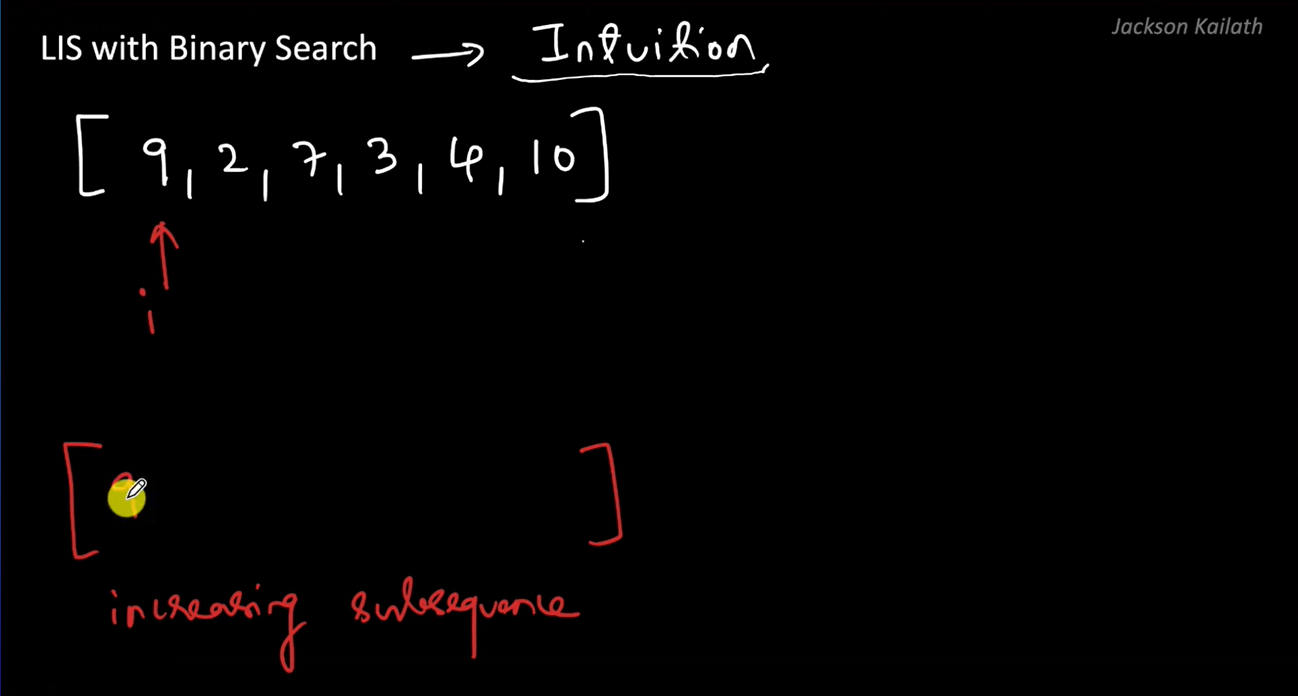 Jackson Kailath
LIS with Binary Search → Intuition
[ 9, 2, 7, 3, 4, 10 ]
i
[ 9 ]
increasing subsequence